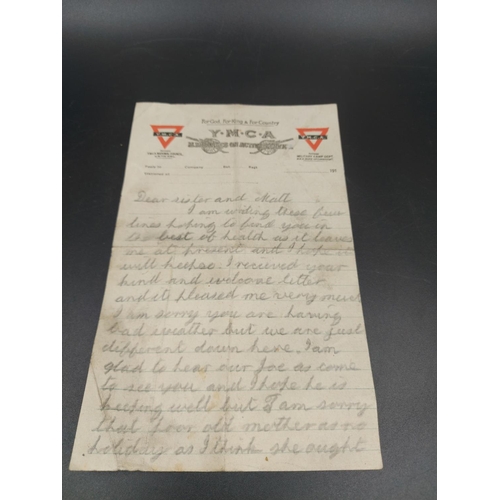 For God, For King & For Country
Y·M·C·A
Y.M.C.A
Y.M.C.A
191
Dear sister and Matt
I am writing these few
lines hoping to find you in
the best of health as it leaves
me at present and I hope it
will keep so. I recieved your
kind and welcome letter
and it pleased me very much
I am sorry you are having
bad weather but we are just
different down here. I am
glad to hear our Joe as come
to see you and I hope he is
keeping well but I am sorry
that poor old mother as no
holiday as I think she ought